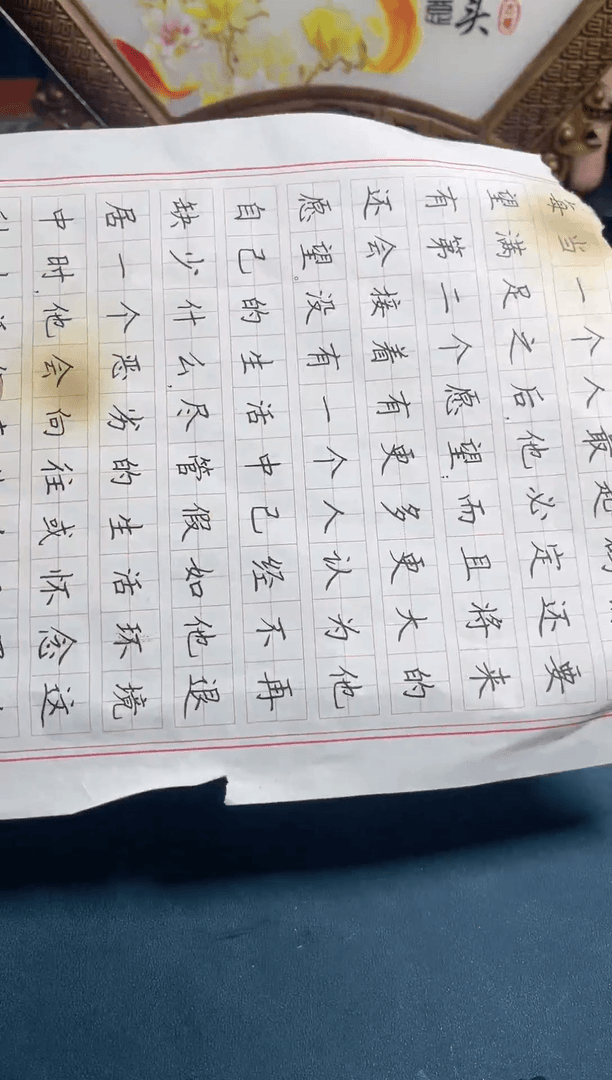 头
每当一个人最起
望满足之后,他必定还要
有第二个愿望;而且将来
还会接着有更多更大的
愿望。没有一个人认为他
自己的生活中已经不再
缺少什么,尽管假如他退
居一个恶劣的生活环境
中时,他会向往或怀念这